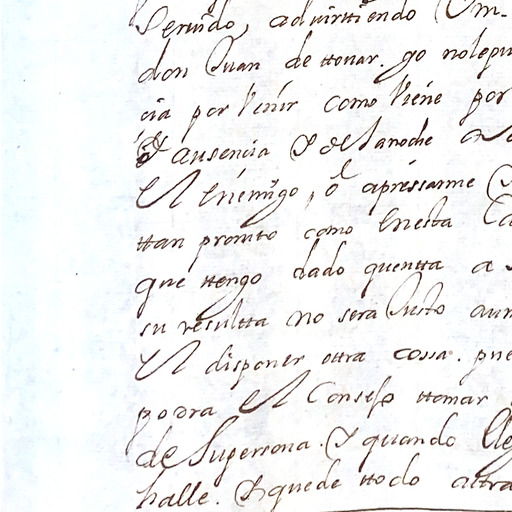 Seruido, aduirttiendo Vm-
don Juan de ttouar. yo nolepu
cia por Venir como Viene por
Y ausencia Y de la noche
El Enemigo, o apressarme
ttan promto como Enesta Ca
que ttengo dado quentta a
su resultta no sera Justo aun
El disponer ottra cossa. pue
podra El Consejo ttomar
de Supersona. Y quando lle
halle. Y quede ttodo attra